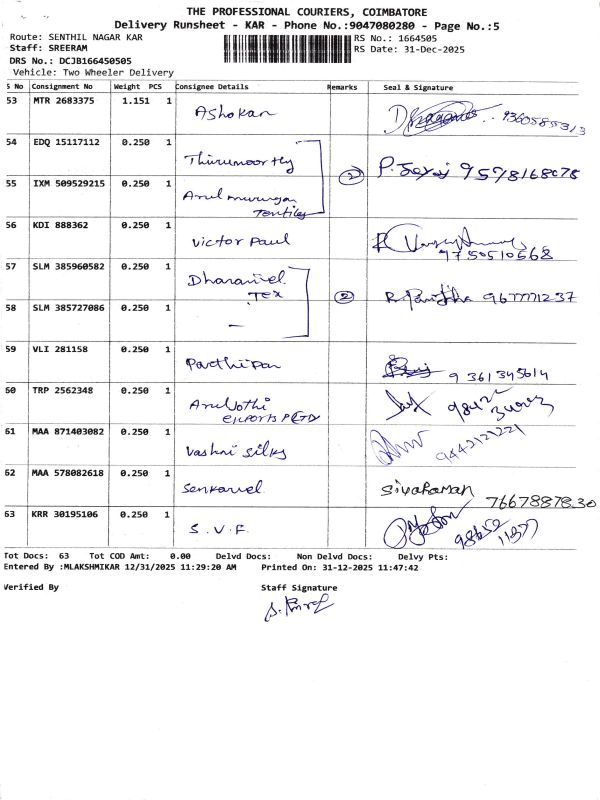 THE PROFESSIONAL COURIERS, COIMBATORE
Delivery Runsheet - KAR - Phone No.:9047080280 - Page No.:5
Route: SENTHIL NAGAR KAR
RS No.: 1664505
Staff: SREERAM
RS Date: 31-Dec-2025
DRS No.: DCJB166450505
Vehicle: Two Wheeler Delivery
S No Consignment No Weight PCS Consignee Details Remarks Seal & Signature
53 MTR 2683375 1.151 1 Ashokan 9360585313
54 EDQ 15117112 0.250 1 Thirumoorthy
2 P. 9578168078
55 IXM 509529215 0.250 1 Arul murugan
Textiles
56 KDI 888362 0.250 1 Victor Paul
9750510568
57 SLM 385960582 0.250 1 Dharanivel
Tex
2 R. 9677771237
58 SLM 385727086 0.250 1 —
59 VLI 281158 0.250 1 Parthipan 9361345614
60 TRP 2562348 0.250 1 Arul Jothi
exports P LTD
61 MAA 871403082 0.250 1 Vashni Silks 9442121221
62 MAA 578082618 0.250 1 Senkavel Sivaraman
7667887830
63 KRR 30195106 0.250 1 S.V.F.
Tot Docs: 63 Tot COD Amt: 0.00 Delvd Docs: Non Delvd Docs: Delvy Pts:
Entered By :MLAKSHMIKAR 12/31/2025 11:29:20 AM Printed On: 31-12-2025 11:47:42
Verified By Staff Signature